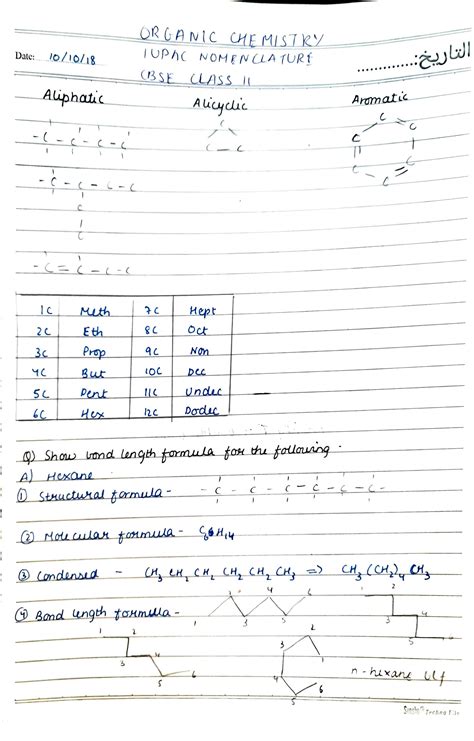 ORGANIC CHEMISTRY
Date: 10/10/18 IUPAC NOMENCLATURE التاريخ:
CBSE CLASS 11
Aliphatic Alicyclic Aromatic
-C-C-C-C
-C-C-C-C
C
C
-C=C-C-C
C
C-C
C
C C
C C
C
1C Meth 7C Hept
2C Eth 8C Oct
3C Prop 9C Non
4C But 10C Dec
5C Pent 11C Undec
6C Hex 12C Dodec
Q) Show bond length formula for the following.
A) Hexane
① Structural formula- -C-C-C-C-C-C-
② Molecular formula- C6H14
③ Condensed - CH3 CH2 CH2 CH2 CH2 CH3 => CH3 (CH2)4 CH3
④ Bond length formula-
1 2 3 4 5 6
1 2 3 4 5 6
1 2 3 4 5 6
1 2 3 4 5 6
n-hexane